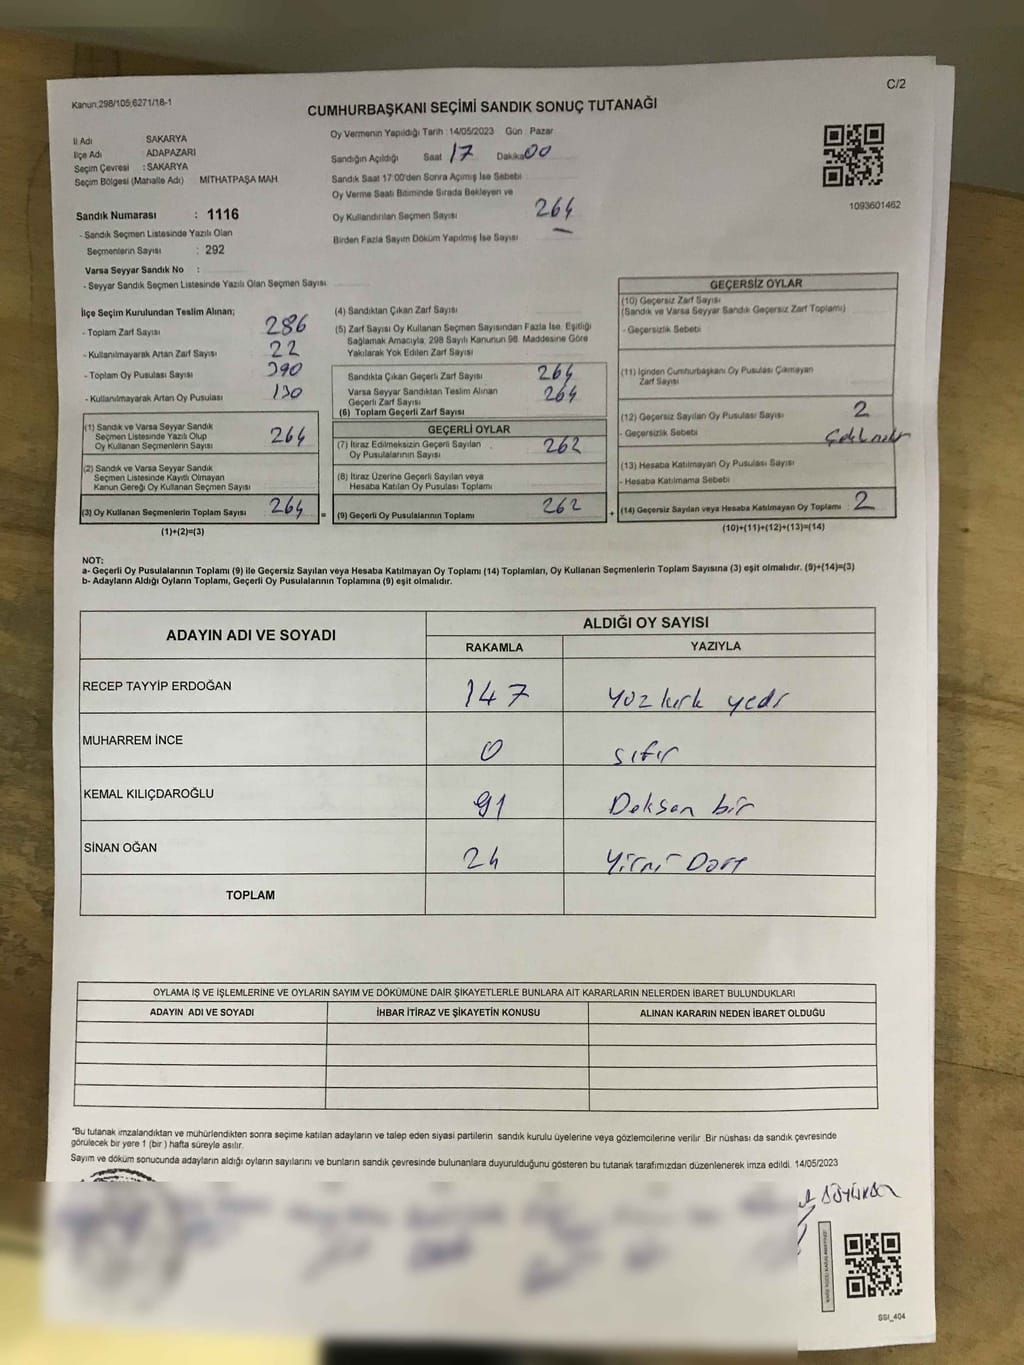 C/2
Kanun:298/105;6271/18-1
CUMHURBAŞKANI SEÇİMİ SANDIK SONUÇ TUTANAĞI
İl Adı SAKARYA
İlçe Adı ADAPAZARI
Seçim Çevresi : SAKARYA
Seçim Bölgesi (Mahalle Adı) MİTHATPAŞA MAH.
Sandık Numarası : 1116
- Sandık Seçmen Listesinde Yazılı Olan
Seçmenlerin Sayısı : 292
Varsa Seyyar Sandık No :
- Seyyar Sandık Seçmen Listesinde Yazılı Olan Seçmen Sayısı
Oy Vermenin Yapıldığı Tarih : 14/05/2023 Gün : Pazar
Sandığın Açıldığı Saat 17 Dakika 00
Sandık Saat 17:00'den Sonra Açımış İse Sebebi
Oy Verme Saati Bitiminde Sırada Bekleyen ve
Oy Kullandırılan Seçmen Sayısı 264
Birden Fazla Sayım Döküm Yapılmış İse Sayısı —
1093601462
İlçe Seçim Kurulundan Teslim Alınan;
- Toplam Zarf Sayısı 286
- Kullanılmayarak Artan Zarf Sayısı 22
- Toplam Oy Pusulası Sayısı 390
- Kullanılmayarak Artan Oy Pusulası 130
(1) Sandık ve Varsa Seyyar Sandık
Seçmen Listesinde Yazılı Olup
Oy Kullanan Seçmenlerin Sayısı 264
(2) Sandık ve Varsa Seyyar Sandık
Seçmen Listesinde Kayıtlı Olmayan
Kanun Gereği Oy Kullanan Seçmen Sayısı
(3) Oy Kullanan Seçmenlerin Toplam Sayısı 264 =
(1)+(2)=(3)
(4) Sandıktan Çıkan Zarf Sayısı
(5) Zarf Sayısı Oy Kullanan Seçmen Sayısından Fazla İse, Eşitliği
Sağlamak Amacıyla, 298 Sayılı Kanunun 98. Maddesine Göre
Yakılarak Yok Edilen Zarf Sayısı
Sandıkta Çıkan Geçerli Zarf Sayısı 264
Varsa Seyyar Sandıktan Teslim Alınan
Geçerli Zarf Sayısı 264
(6) Toplam Geçerli Zarf Sayısı
GEÇERLİ OYLAR
(7) İtiraz Edilmeksizin Geçerli Sayılan
Oy Pusulalarının Sayısı 262
(8) İtiraz Üzerine Geçerli Sayılan veya
Hesaba Katılan Oy Pusulası Toplamı
(9) Geçerli Oy Pusulalarının Toplamı 262 +
GEÇERSİZ OYLAR
(10) Geçersiz Zarf Sayısı
(Sandık ve Varsa Seyyar Sandık Geçersiz Zarf Toplamı)
- Geçersizlik Sebebi
(11) İçinden Cumhurbaşkanı Oy Pusulası Çıkmayan
Zarf Sayısı
(12) Geçersiz Sayılan Oy Pusulası Sayısı 2
- Geçersizlik Sebebi
(13) Hesaba Katılmayan Oy Pusulası Sayısı
- Hesaba Katılmama Sebebi
(14) Geçersiz Sayılan veya Hesaba Katılmayan Oy Toplamı 2
(10)+(11)+(12)+(13)=(14)
NOT:
a- Geçerli Oy Pusulalarının Toplamı (9) ile Geçersiz Sayılan veya Hesaba Katılmayan Oy Toplamı (14) Toplamları, Oy Kullanan Seçmenlerin Toplam Sayısına (3) eşit olmalıdır. (9)+(14)=(3)
b- Adayların Aldığı Oyların Toplamı, Geçerli Oy Pusulalarının Toplamına (9) eşit olmalıdır.
ADAYIN ADI VE SOYADI ALDIĞI OY SAYISI
RAKAMLA YAZIYLA
RECEP TAYYİP ERDOĞAN 147 Yüz kırk yedi
MUHARREM İNCE 0 sıfır
KEMAL KILIÇDAROĞLU 91 Doksan bir
SİNAN OĞAN 24 Yirmi Dört
TOPLAM
OYLAMA İŞ VE İŞLEMLERİNE VE OYLARIN SAYIM VE DÖKÜMÜNE DAİR ŞİKAYETLERLE BUNLARA AİT KARARLARIN NELERDEN İBARET BULUNDUKLARI
ADAYIN ADI VE SOYADI İHBAR İTİRAZ VE ŞİKAYETİN KONUSU ALINAN KARARIN NEDEN İBARET OLDUĞU
*Bu tutanak imzalandıktan ve mühürlendikten sonra seçime katılan adayların ve talep eden siyasi partilerin sandık kurulu üyelerine veya gözlemcilerine verilir .Bir nüshası da sandık çevresinde
görülecek bir yere 1 (bir ) hafta süreyle asılır.
Sayım ve döküm sonucunda adayların aldığı oyların sayılarını ve bunların sandık çevresinde bulunanlara duyurulduğunu gösteren bu tutanak tarafımızdan düzenlenerek imza edildi. 14/05/2023
SSI_404